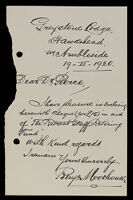 Greystone Lodge,
Hawkshead,
nr Ambleside
19-II-1920.
Dear Dr Pearce,
I have pleasure in enclosing
herewith cheque
of The Patients Staff
Fund
With kind regards
I remain
Yours Sincerely,
Moorhouse